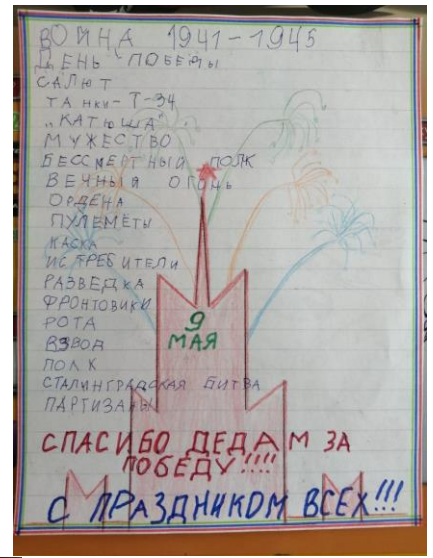 ВОЙНА 1941-1945
ДЕНЬ ПОБЕДЫ
САЛЮТ
ТАНКИ-Т-34
"КАТЮША"
МУЖЕСТВО
БЕССМЕРТНЫЙ ПОЛК
ВЕЧНЫЙ ОГОНЬ
ОРДЕНА
ПУЛЕМЁТЫ
КАСКА
ИСТРЕБИТЕЛИ
РАЗВЕДКА
ФРОНТОВИКИ
РОТА
ВЗВОД
ПОЛК
СТАЛИНГРАДСКАЯ БИТВА
ПАРТИЗАНЫ
9
МАЯ
СПАСИБО ДЕДАМ ЗА
ПОБЕДУ!!!!
С ПРАЗДНИКОМ ВСЕХ!!!